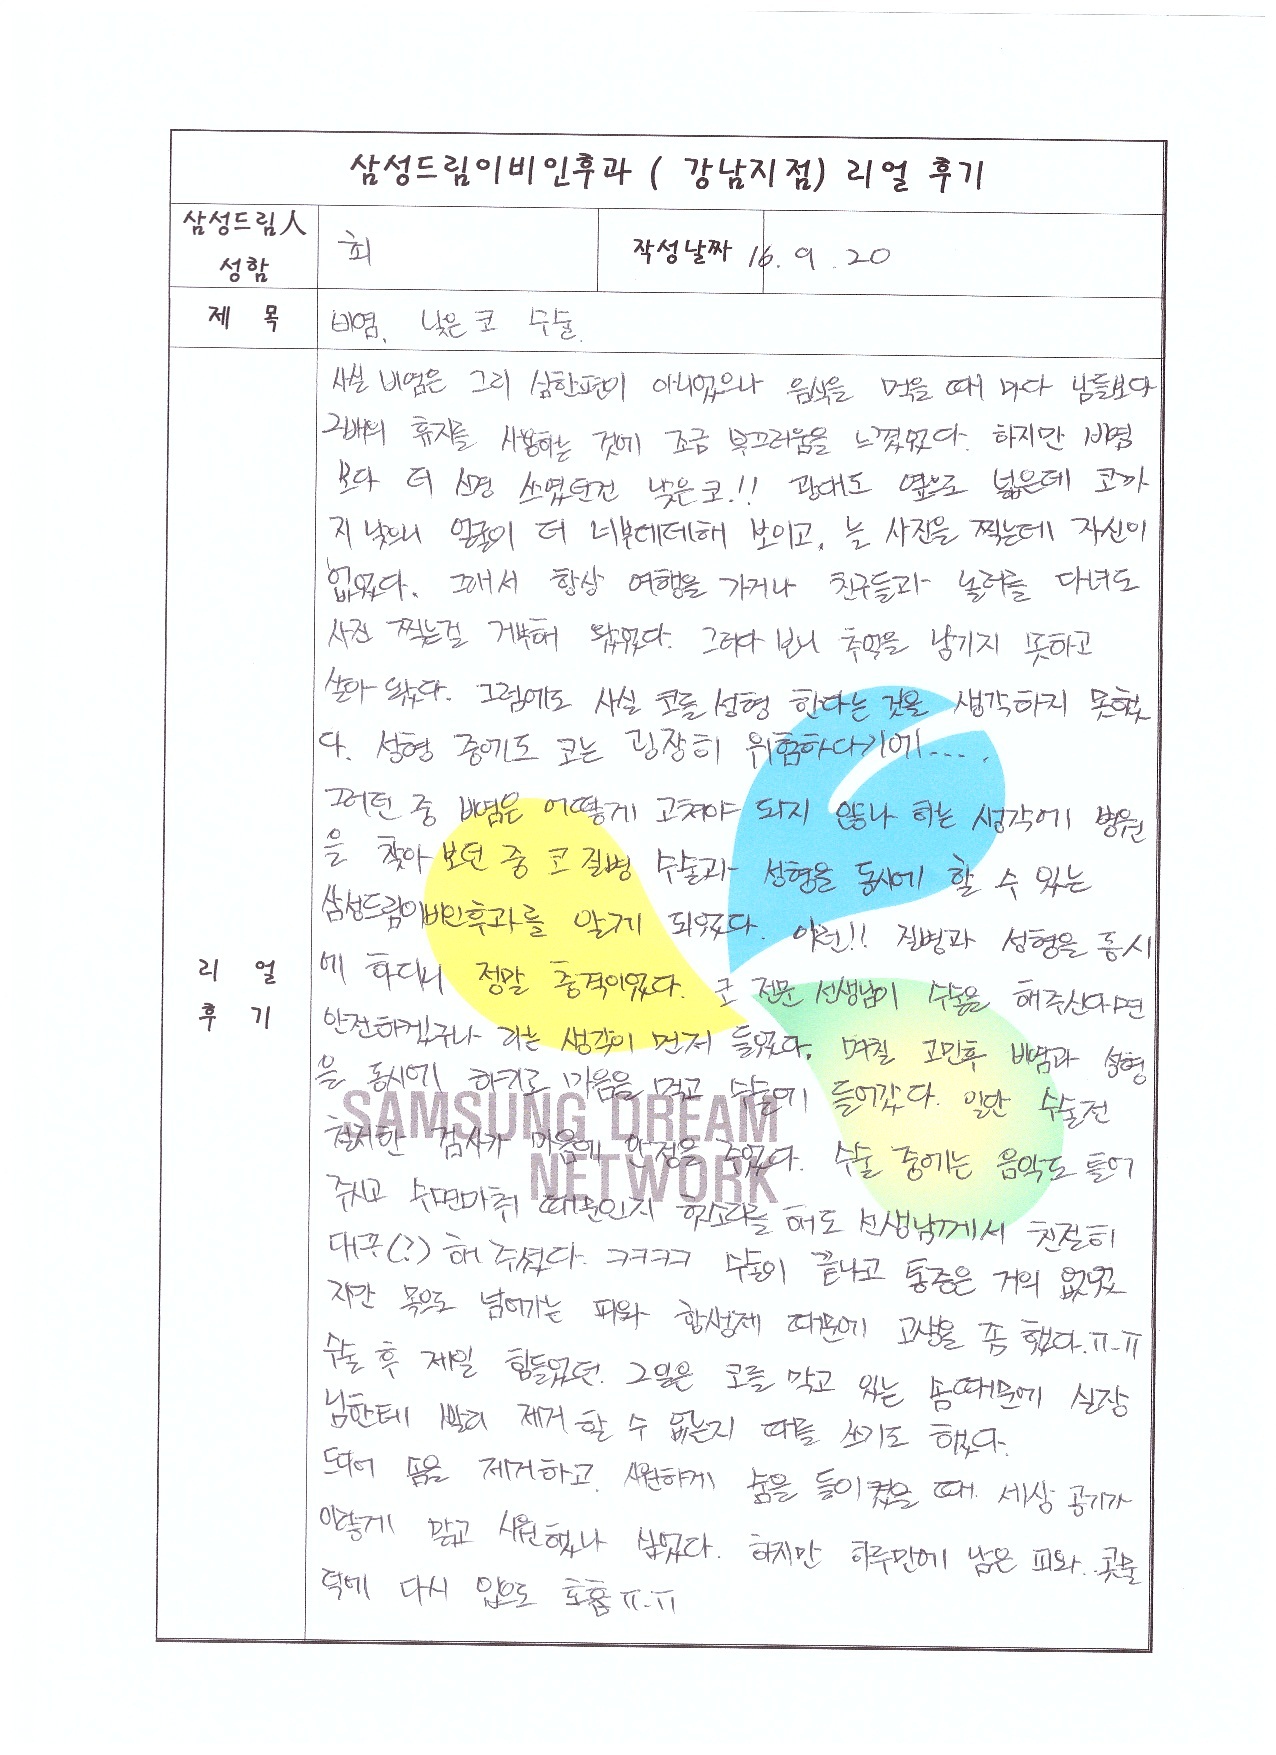 삼성드림이비인후과 ( 강남지점) 리얼 후기
삼성드림人
성함
최
작성날짜
16. 9. 20
제 목
비염, 낮은 코 수술.
리 얼
후 기
사실 비염은 그리 심한편이 아니었으나 음식을 먹을 때 마다 남들보다
2배의 휴지를 사용하는 것에 조금 부끄러움을 느꼈었다. 하지만 비염
보다 더 신경 쓰였던건 낮은 코!! 광대도 옆으로 넓은데 코까
지 낮으니 얼굴이 더 너부데데해 보이고, 늘 사진을 찍는데 자신이
없었다. 그래서 항상 여행을 가거나 친구들과 놀러를 다녀도
사진 찍는걸 거부해 왔었다. 그러다 보니 추억을 남기지 못하고
살아 왔다. 그럼에도 사실 코를 성형 한다는 것을 생각하지 못했
다. 성형 중에도 코는 굉장히 위험하다기에....
그러던 중 비염은 어떻게 고쳐야 되지 않나 하는 생각에 병원
을 찾아 보던 중 코 질병 수술과 성형을 동시에 할 수 있는
삼성드림이비인후과를 알게 되었다. 이런!! 질병과 성형을 동시
에 하다니 정말 충격이었다. 코 전문 선생님이 수술을 해주신다면
안전하겠구나 라는 생각이 먼저 들었다. 며칠 고민후 비염과 성형
을 동시에 하기로 마음을 먹고 수술에 들어갔다. 일단 수술전
철저한 검사가 마음에 안정을 주었다. 수술 중에는 음악도 틀어
주시고 수면마취 때문인지 헛소리를 해도 선생님께서 친절히
대꾸(?) 해 주셨다. ㅋㅋㅋㅋ 수술이 끝나고 통증은 거의 없었
지만 목으로 넘어가는 피와 합성제 때문에 고생을 좀 했다.ㅠ-ㅠ
수술 후 제일 힘들었던 2일은 코를 막고 있는 솜때문에 실장
님한테 빨리 제거 할 수 없는지 떼를 쓰기도 했다.
드디어 솜을 제거하고 시원하게 숨을 들이켰을 때 세상 공기가
이렇게 맑고 시원했나 싶었다. 하지만 하루만에 남은 피와 콧물
덕에 다시 입으로 호흡 ㅠ-ㅠ
SAMSUNG DREAM
NETWORK